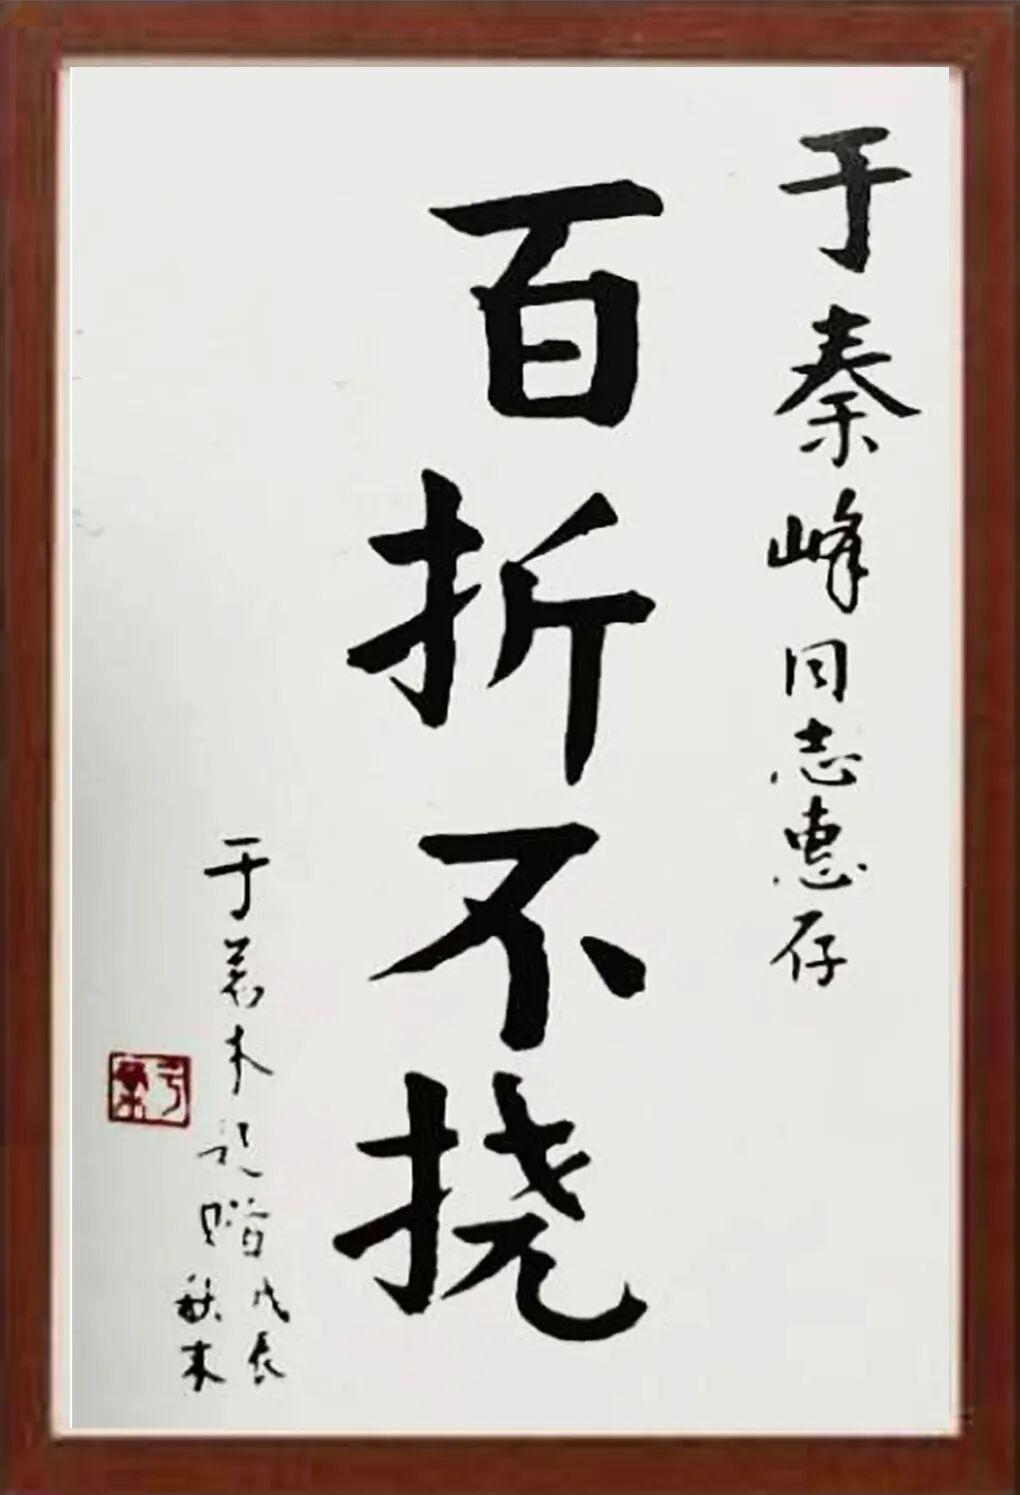 于秦峰同志惠存
百折不挠
于若木记赠
戊辰
秋末